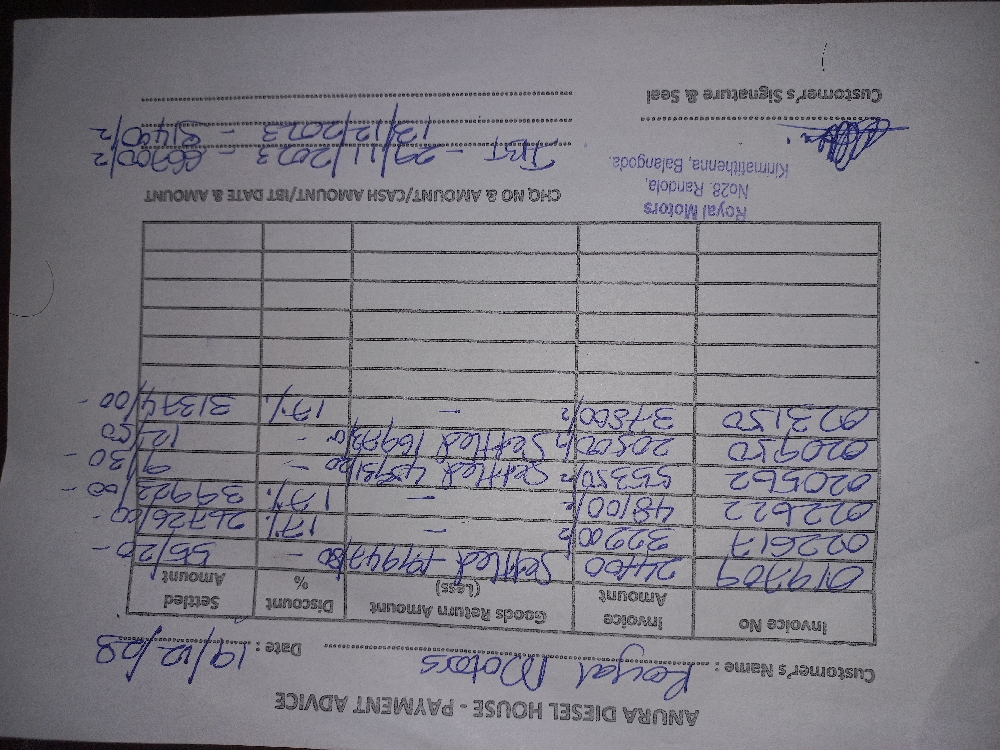 ANURA DIESEL HOUSE - PAYMENT ADVICE
Customer's Name : Royal Motors Date : 19/12/23
Invoice No Invoice Amount Goods Return Amount (Less) Discount % Settled Amount
019709 24400 Settled - 55/20 -
022617 32200/= - 17% 26726/00 -
022622 48100/= - 17% 39922/00 -
020562 55350/= Settled - 9/30 -
020950 20500/= Settled - 12/50
023150 37800/= - 17% 31374/00 -
Royal Motors
No28. Randola,
Kirimatithenna, Balangoda.
CHQ NO & AMOUNT/CASH AMOUNT/IBT DATE & AMOUNT
- 23/11/2023 - 66700/=
13/12/2023 - 31400/=
Customer's Signature & Seal